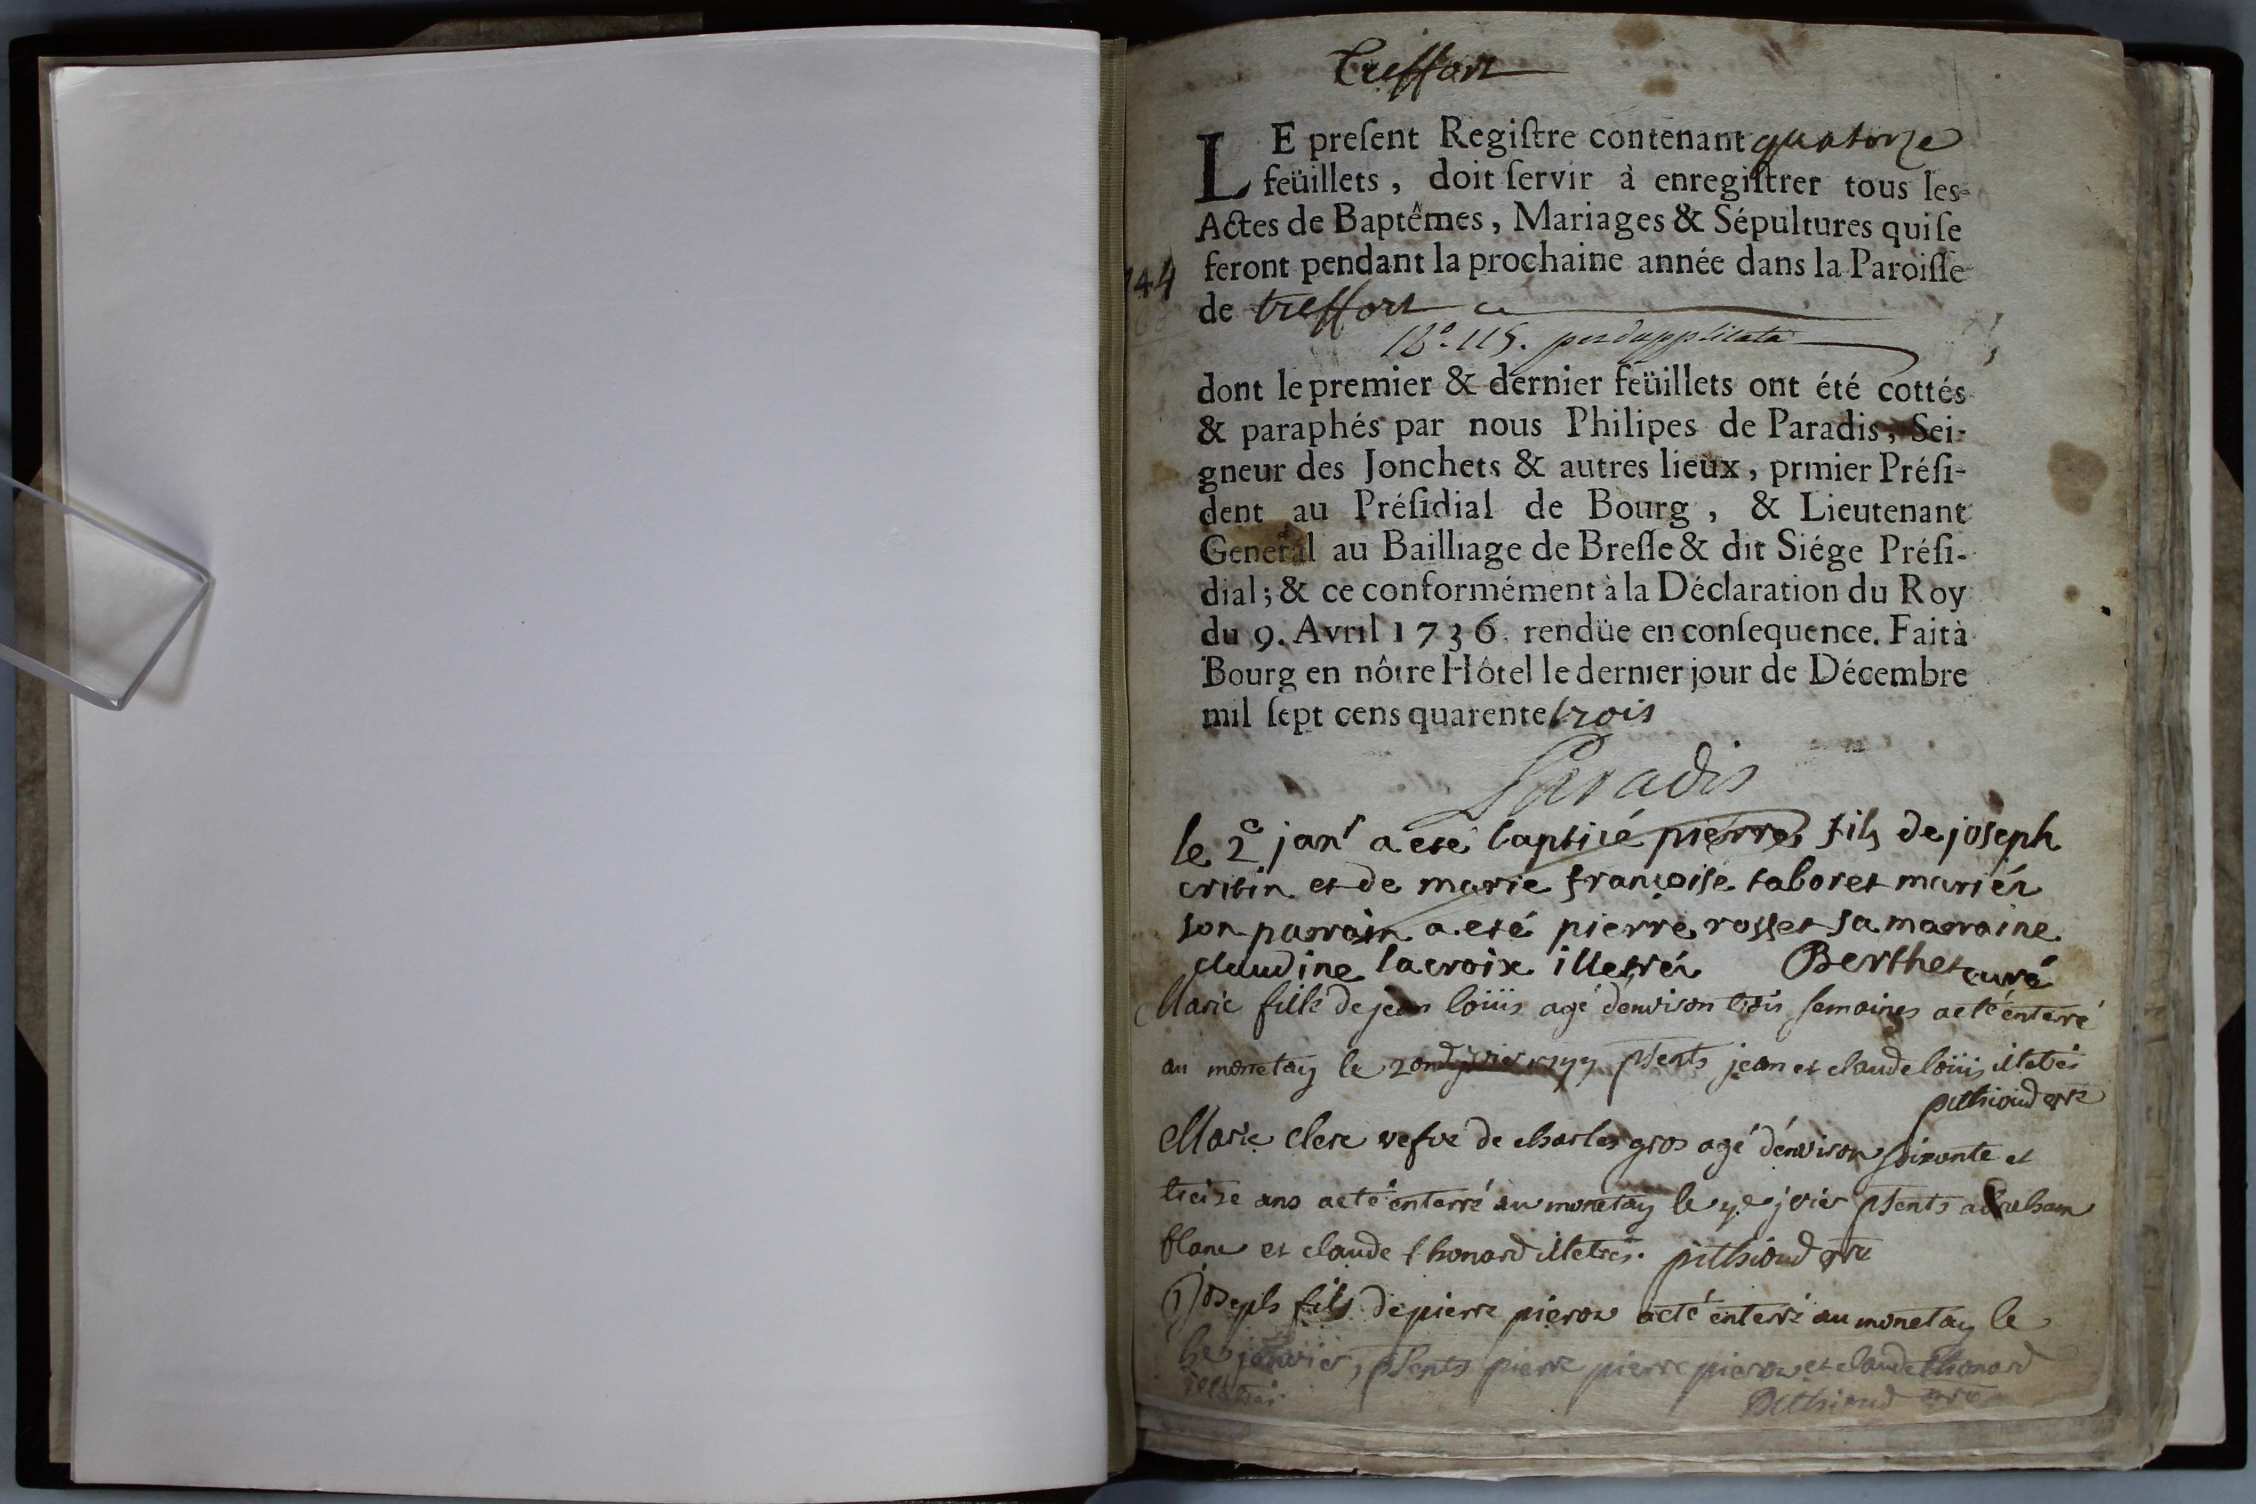 Treffort
LE preſent Regiſtre contenant quatorze
feüillets, doit ſervir à enregiſtrer tous les
Actes de Baptêmes, Mariages & Sépultures qui ſe
feront pendant la prochaine année dans la Paroiſſe
744
de treffort
dont le premier & dernier feüillets ont été cottés
& paraphés par nous Philipes de Paradis, Sei-
gneur des Jonchets & autres lieux, prmier Préſi-
dent au Préſidial de Bourg, & Lieutenant
General au Bailliage de Breſſe & dit Siége Préſi-
dial; & ce conformément à la Déclaration du Roy
du 9. Avril 1736. rendüe en conſequence. Fait à
Bourg en nôtre Hôtel le dernier jour de Décembre
mil ſept cens quarente trois
Paradis
le 2e janr a eté baptisé pierre fils de joseph
et de marie françoise taboret mariés
son parrain a eté pierre rosset sa marraine
claudine lacroix illetrés Berthet curé
Marie fille de jean loüis agé d'environ trois semaines a eté enterré
au monetay le psents jean et claude loüis illetrés
pithioud
Marie clerc vefve de charles gros agé d'environ soixante et
treize ans a eté enterré au monetay le jvier psents abraham
blanc et claude thonard illetrés. pithioud
Joseph fils de pierre pieron a eté enterré au monetay le
janvier, psents pierre pierre pieron et claude thonard
illetrés.
pithioud